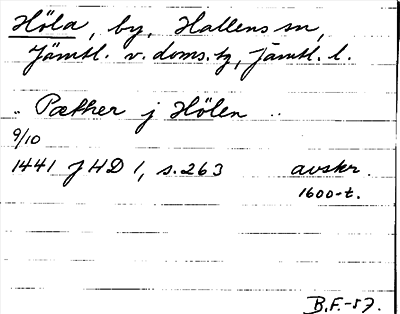 Höla, by, Hallens sn,
Jämtl. v. doms.tg, Jämtl. l.
.. Pæther j Hölen ..
9/10
1441 JHD 1, s. 263 avskr.
1600-t.
B.F.-57.